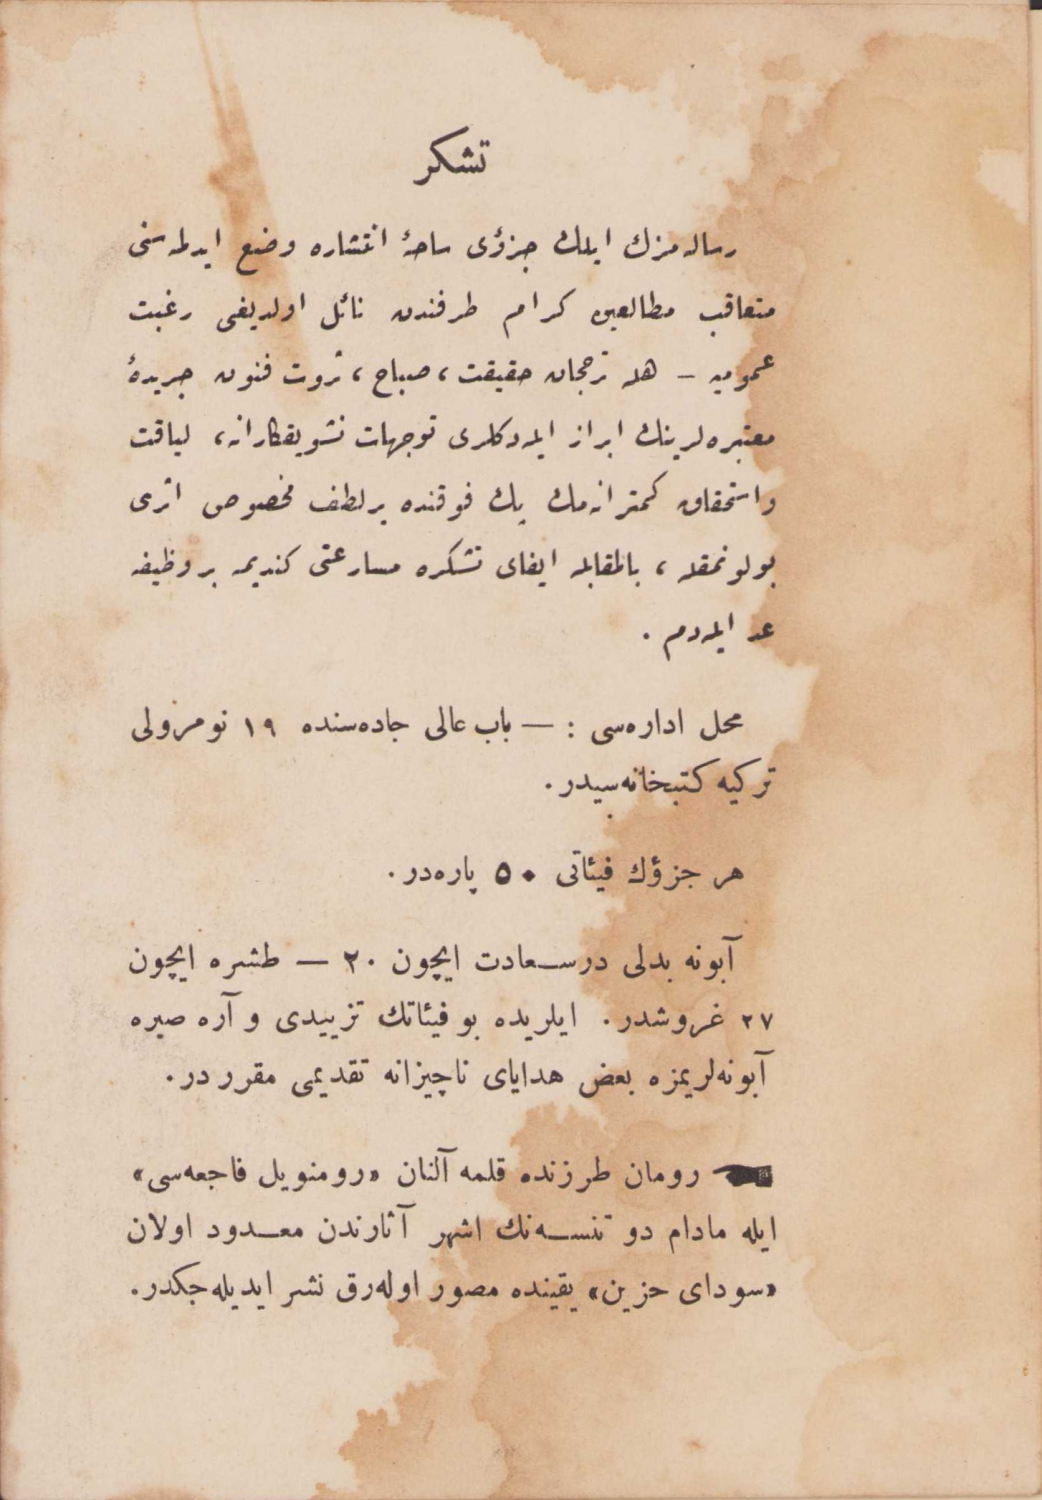 تشكر
رساله‌مزك ايلك جزؤى ساحۀ انتشاره وضع ايدلمه‌سنى
متعاقب مطالعين كرام طرفندن نائل اولديغى رغبت
عموميه – هله ترجمان حقيقت ، صباح ، ثروت فنون جريدۀ
معتبره‌لرينك ابراز ايله‌دكلرى توجهات تشويقكارانه ، لياقت
واستحقاق كمترانه‌مك پك فوقنده برلطف مخصوص اثرى
بولونمقله ، بالمقابله ايفاى تشكره مسارعتى كنديمه بروظيفه
عد ايله‌دم .
محل اداره‌سى : — باب عالى جاده‌سنده ١٩ نومرولى
تركيه كتبخانه‌سيدر .
هر جزؤك فيئاتى ٥٠ پاره‌در .
آبونه بدلى درسـعادت ايچون ٢٠ — طشره ايچون
٢٧ غروشدر . ايلريده بو فيئاتك تزييدى و آره صيره
آبونه‌لريمزه بعض هداياى ناچيزانه تقديمى مقرردر .
رومان طرزنده قلمه آلنان «رومنويل فاجعه‌سى»
ايله مادام دو تنسـه‌نك اشهر آثارندن معـدود اولان
«سوداى حزين» يقينده مصور اوله‌رق نشر ايديله‌جكدر .